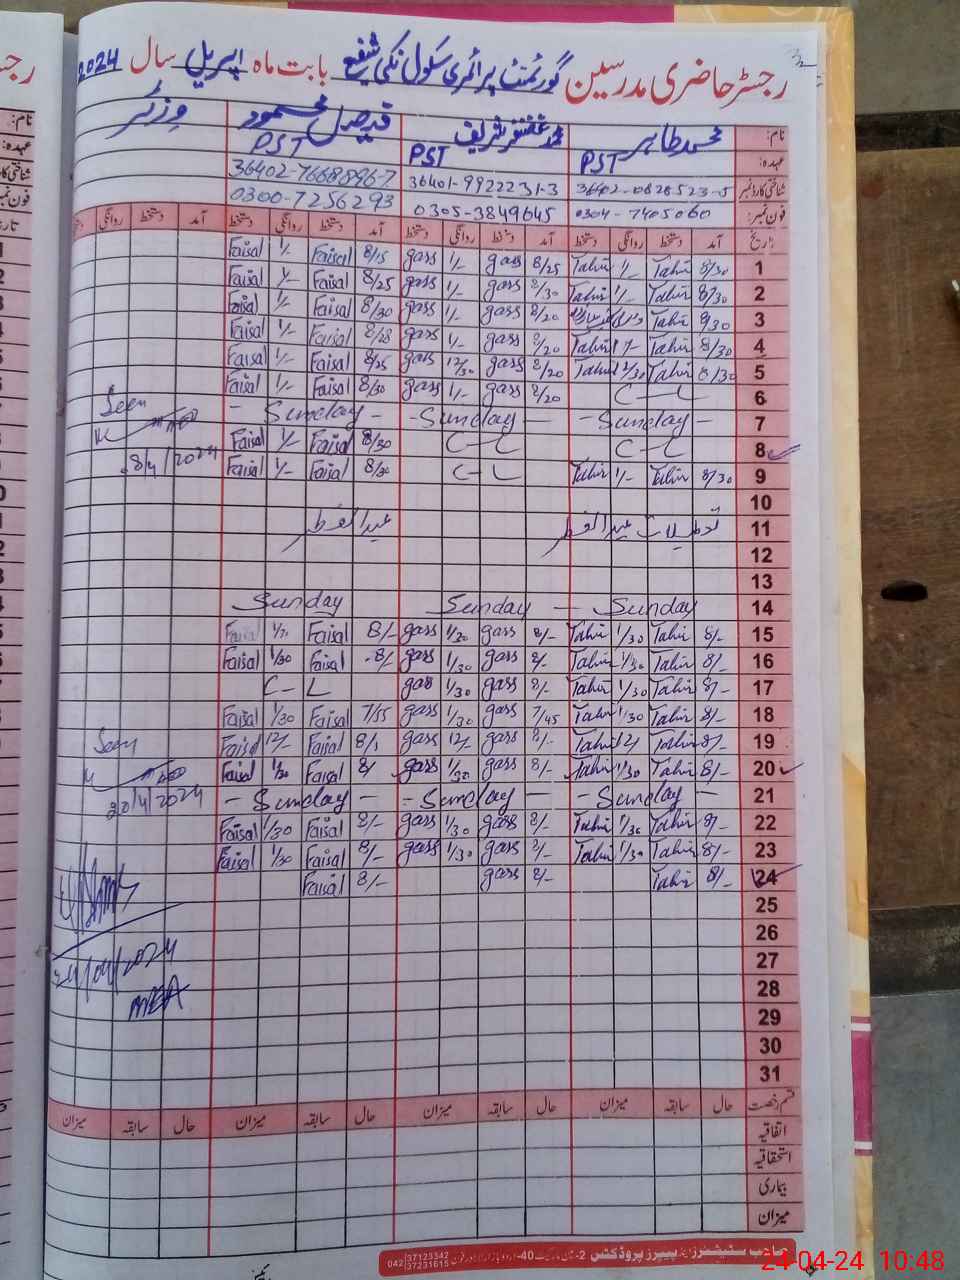 رجسٹر حاضری مدرسین گورنمنٹ پرائمری سکول نکی شفیع بابت ماہ اپریل سال 2024
نام: محمد طاہر محمد غضنفر شریف فیصل محمود وزٹر
عہدہ: PST PST PST
شناختی کارڈ نمبر 36402-0828523-5 36401-9922231-3 36402-7668896-7
فون نمبر: 0304-7405060 0305-3849645 0300-7256293
تاریخ آمد دستخط روانگی دستخط آمد دستخط روانگی دستخط آمد دستخط روانگی دستخط آمد دستخط روانگی
Faisal 1/- Faisal 8/15 gass 1/- gass 8/25 Tahir 1/- Tahir 8/30 1
Faisal 1/- Faisal 8/25 gass 1/- gass 8/30 Tahir 1/- Tahir 8/30 2
Faisal 1/- Faisal 8/30 gass 1/- gass 8/20 Tahir 9/30 3
Faisal 1/- Faisal 8/28 gass 1/- gass 8/20 Tahir 1/- Tahir 8/30 4
Faisal 1/- Faisal 8/25 gass 12/30 gass 8/20 Tahir 12/30 Tahir 8/30 5
Faisal 1/- Faisal 8/30 gass 1/- gass 8/20 C-L 6
Seen - Sunday - - Sunday - - Sunday - 7
Faisal 1/- Faisal 8/30 C-L C-L 8
8/4/2024 Faisal 1/- Faisal 8/30 C-L Tahir 1/- Tahir 8/30 9
10
عید الفطر تعطیلات عید الفطر 11
12
13
Sunday Sunday - Sunday 14
Faisal Faisal 8/- gass 1/30 gass 8/- Tahir 1/30 Tahir 8/- 15
Faisal 1/30 Faisal 8/- gass 1/30 gass 8/- Tahir 1/30 Tahir 8/- 16
C-L gass 1/30 gass 8/- Tahir 1/30 Tahir 8/- 17
Faisal 1/30 Faisal 7/55 gass 1/30 gass 7/45 Tahir 1/30 Tahir 8/- 18
Seen Faisal 12/- Faisal 8/- gass 12/- gass 8/- Tahir 12/ Tahir 8/- 19
Faisal 1/30 Faisal 8/ gass 1/30 gass 8/- Tahir 1/30 Tahir 8/- 20
20/4/2024 - Sunday - - Sunday - - Sunday - 21
Faisal 1/30 Faisal 8/- gass 1/30 gass 8/- Tahir 1/30 Tahir 8/- 22
Faisal 1/30 Faisal 8/- gass 1/30 gass 8/- Tahir 1/30 Tahir 8/- 23
Faisal 8/- gass 8/- Tahir 8/- 24
25
26
24/04/2024 27
MEA 28
29
30
31
قسم رخصت حال سابقہ میزان حال سابقہ میزان حال سابقہ میزان حال سابقہ میزان
اتفاقیہ
استحقاقیہ
بیماری
میزان
صاحب سٹیشنرز اینڈ پیپرز پروڈکٹس
042 37123342
37231615
24-04-24 10:48